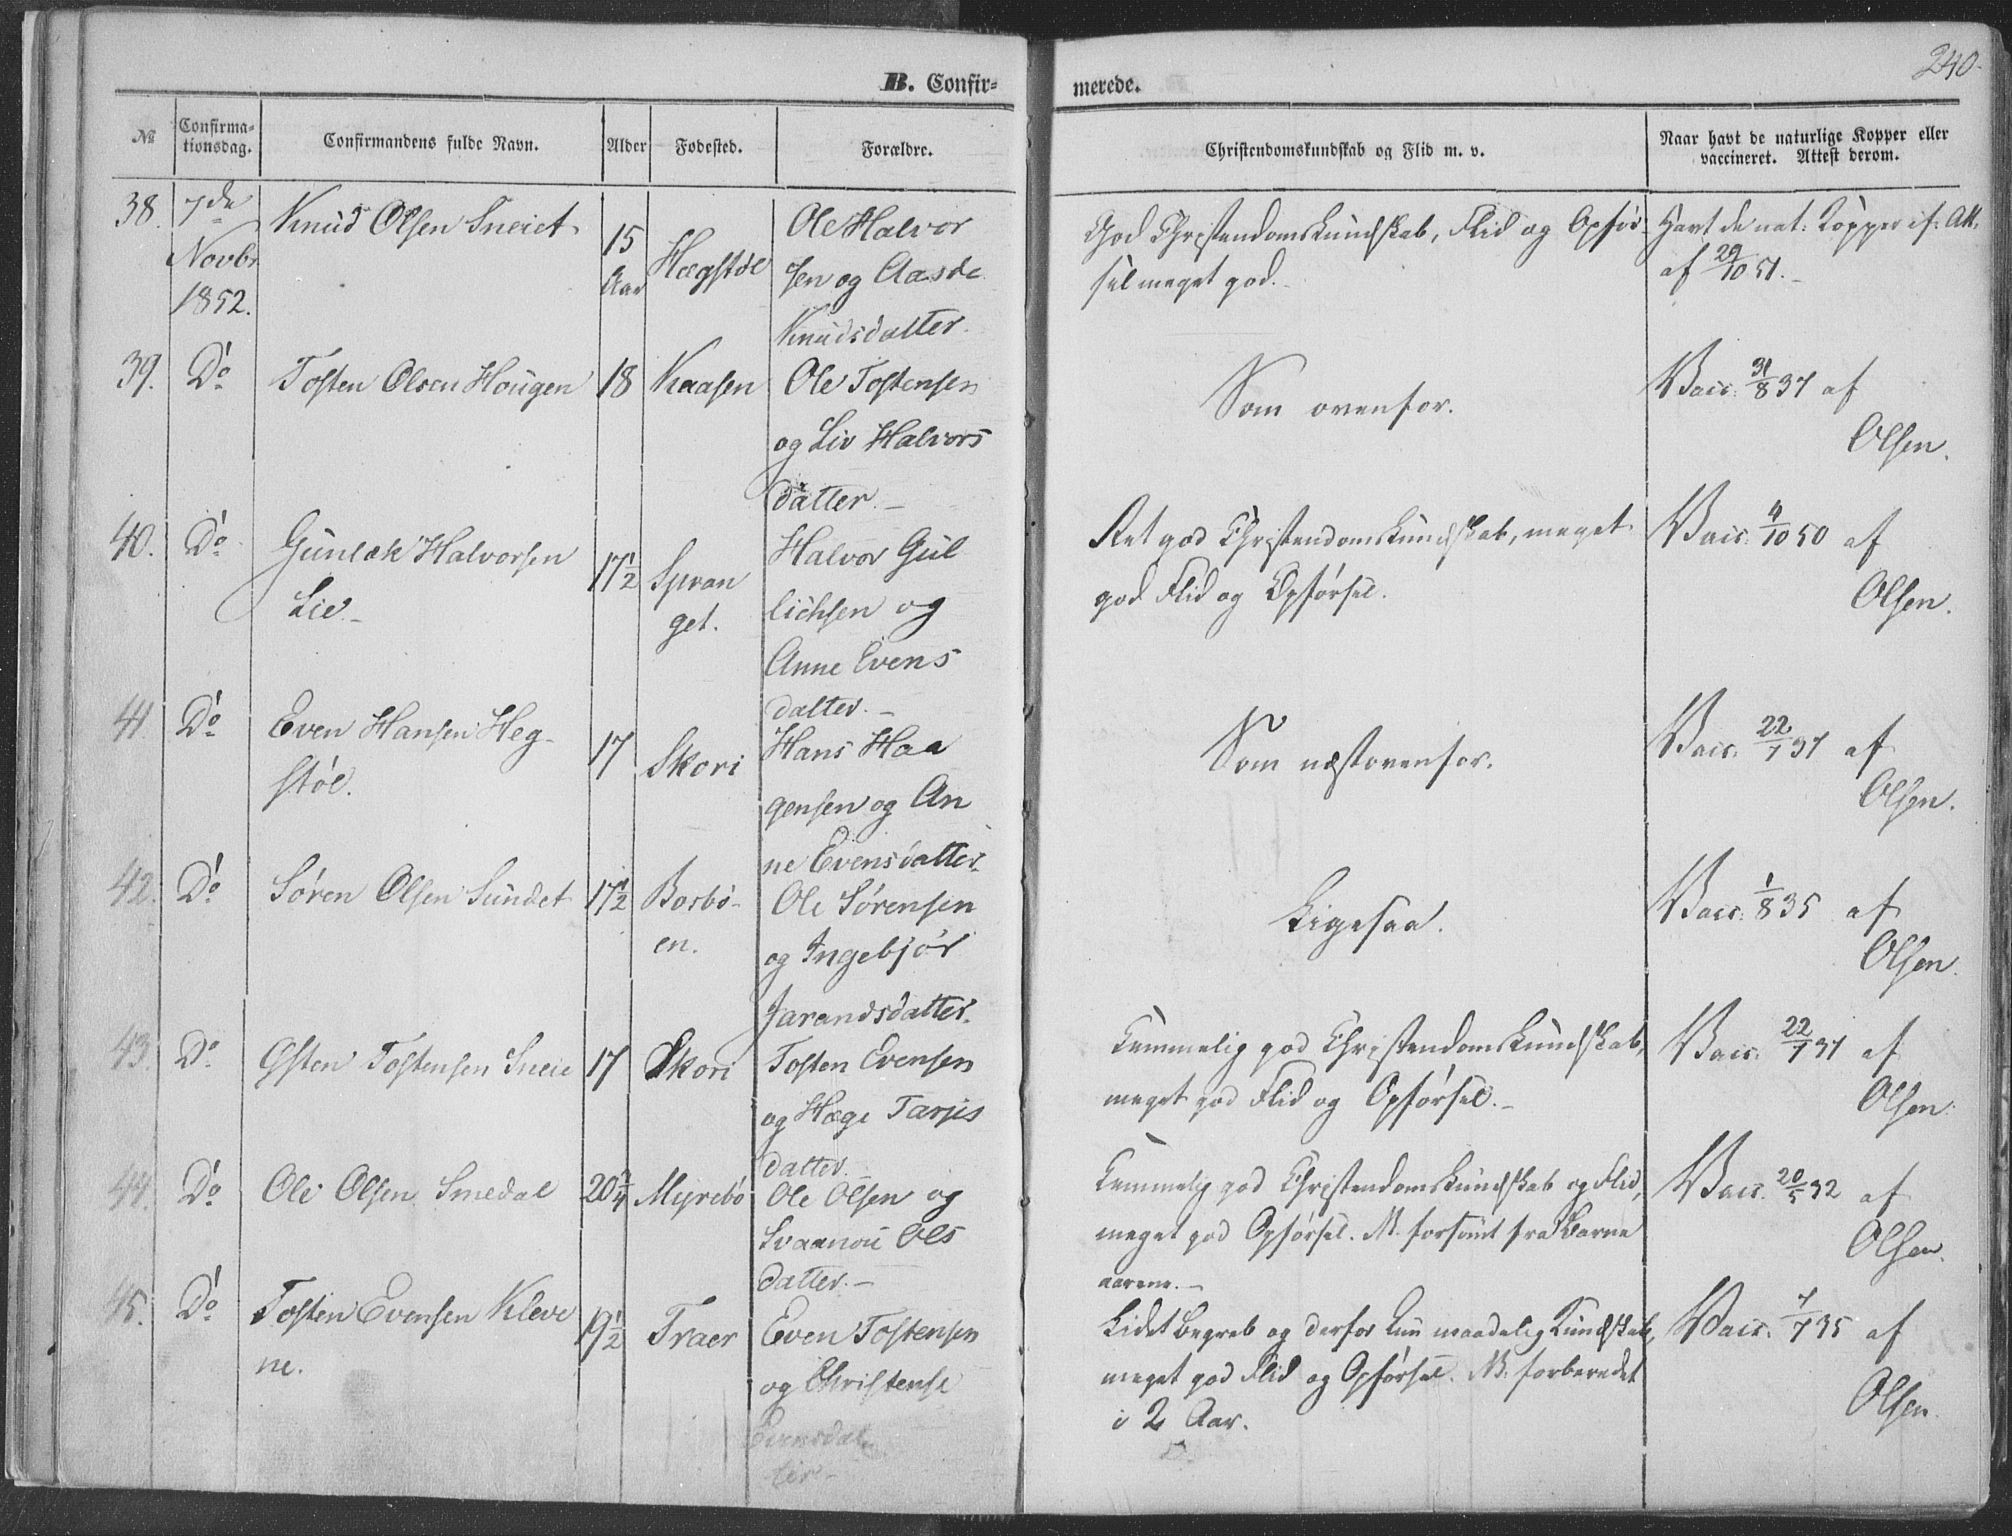 240.
B. Confir-
merede.
No
Confirma-
tionsdag.
Confirmandens fulde Navn.
Alder
Fødested.
Forældre.
Christendomskundskab og Flid m. v.
Naar havt de naturlige Kopper eller
vaccineret. Attest derom.
38. 7de Novbr 1852. Knud Olsen Sneiet 15 Aar Hægstøl
Ole Halvor
sen og Aasde
Knudsdatter.
God Christendomskundskab, Flid og Opfør-
sel meget god.
Havt de nat: Kopper if: Att.
af 29/10 51.
39. Do Tosten Olsen Hougen 18 Kaasen
Ole Tostensen
og Liv Halvors
datter.
Som ovenfor.
Vacc. 31/8 37 af
Olsen.
40. Do Gunlek Halvorsen
Lie
17 1/2 Spran
get.
Halvor Gul
lichsen og
Anne Evens
datter.
Ret god Christendomskundskab, meget
god Flid og Opførsel.
Vacc. 4/10 50 af
Olsen.
41. Do Even Hansen Heg-
støl.
17 Skori
Hans Haa
gensen og An
ne Evensdatter.
Som næstovenfor.
Vacc. 22/7 37 af
Olsen.
42. Do Søren Olsen Sundet 17 1/2 Bosbø-
en.
Ole Sørensen
og Ingebjør
Jarandsdatter.
Ligesaa.
Vacc. 1/8 35 af
Olsen.
43. Do Østen Tostensen Sneie 17 Skori
Tosten Evensen
og Hæge Tarjes
datter.
Temmelig god Christendomskundskab,
meget god Flid og Opførsel.
Vacc. 22/7 37 af
Olsen.
44. Do Ole Olsen Smedal 20 3/4 Myrebø
Ole Olsen og
Svaanou Ols
datter.
Temmelig god Christendomskundskab og Flid,
meget god Opførsel. NB. forsømt fra Barne
aarene.
Vacc. 20/5 32 af
Olsen.
45. Do Tosten Evensen Kleve
ne.
19 1/2 Traer
Even Tostensen
og Christense
Evensdat
ter
Lidet Begreb og derfor kun maadelig Kundskab,
meget god Flid og Opførsel. NB. forberedet
i 2 Aar.
Vacc. 7/7 35 af
Olsen.